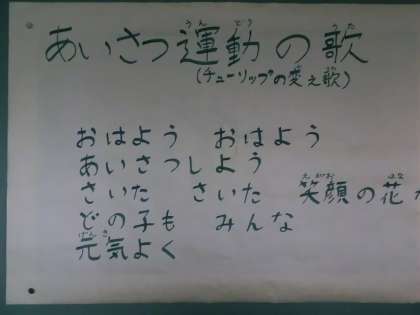 あいさつ運動の歌
(チューリップの変え歌)
おはよう おはよう
あいさつしよう
さいた さいた 笑顔の花が
どの子も みんな
元気よく